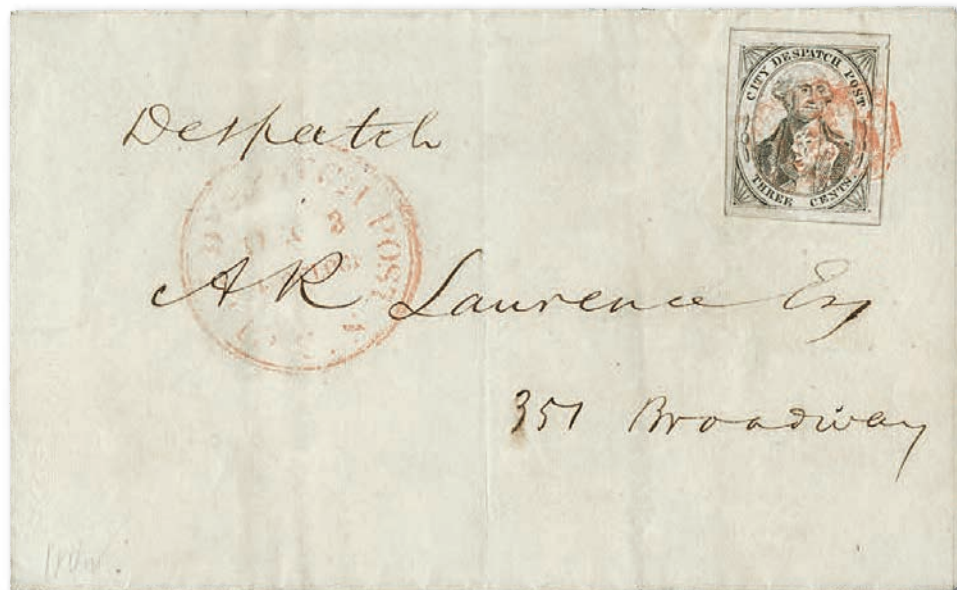 CITY DESPATCH POST
THREE CENTS.
Despatch
POST
A R Lawrence Esq
351 Broadway